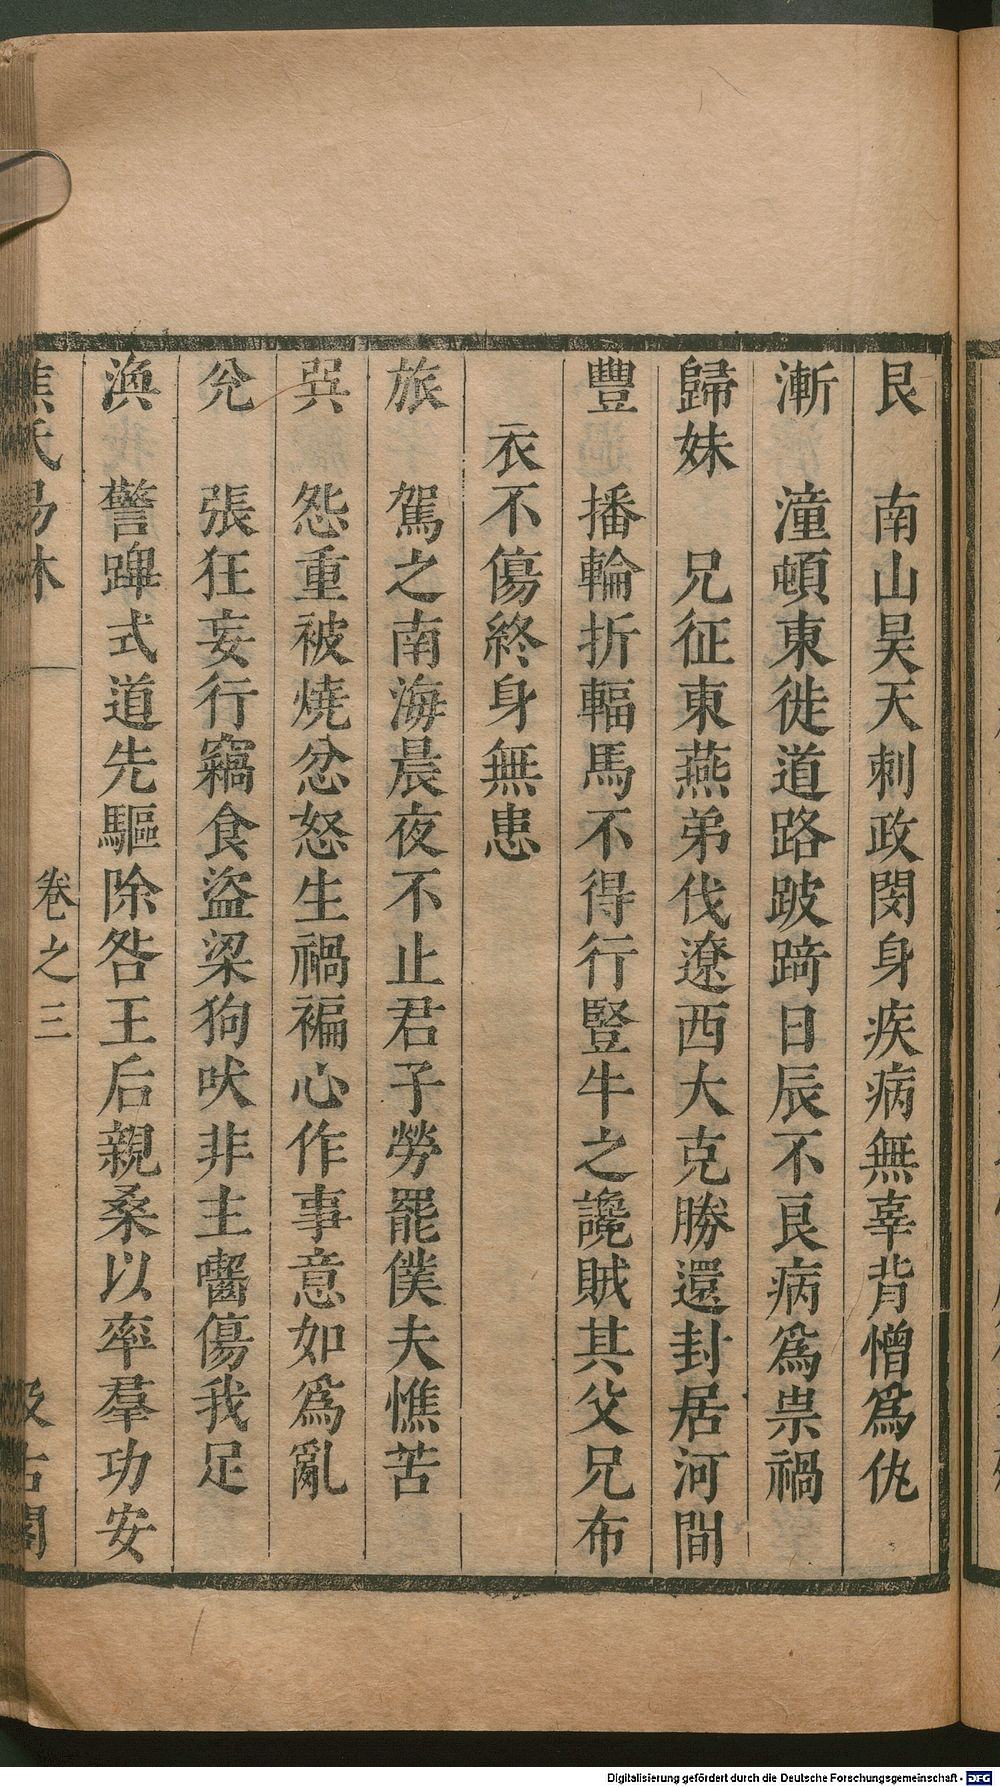 艮　南山昊天刺政閔身疾病無辜背憎爲仇
漸　潼頓東徙道路跛踦日辰不良病爲祟禍
歸妹　兄征東燕弟伐遼西大克勝還封居河間
豐　播輪折輻馬不得行豎牛之讒賊其父兄布
衣不傷終身無患
旅　駕之南海晨夜不止君子勞罷僕夫憔苦
巽　怨重被燒忿怒生禍褊心作事意如爲亂
兌　張狂妄行竊食盜梁狗吠非主齧傷我足
渙　警蹕式道先驅除咎王后親桑以率羣功安
焦氏易林　卷之三　汲古閣
Digitalisierung gefördert durch die Deutsche Forschungsgemeinschaft - DFG